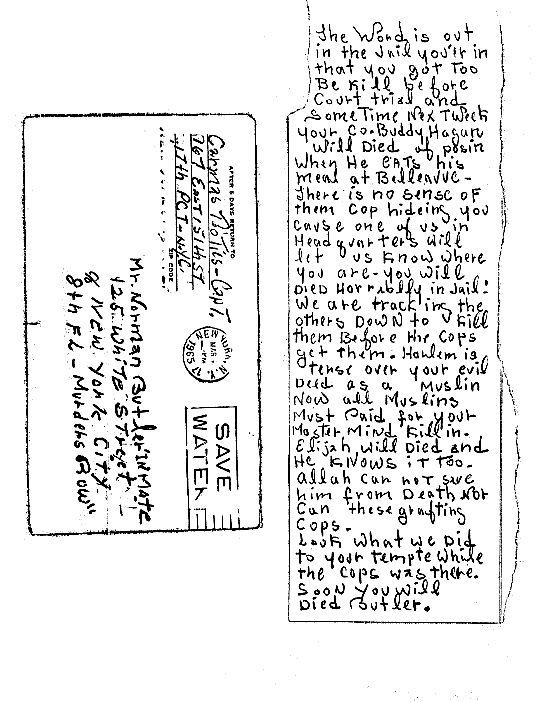 AFTER 5 DAYS RETURN TO
Carmas Notics - Capt.
767 EAST 151th ST
47th PCT - N.Y.C.
ZIP CODE
NEW YORK, N.Y.
MAR
17
1965
SAVE
WATER
Mr. Norman Butler INMATE
125 WHITE Street -
% NEW YORK CITY
8th FL - Murders Row"
The Word is out
in the Jail you'r in
that you got Too
Be Kill before
Court trial and
SomeTime Nex Tweek
your Co-Buddy Hagan
Will Died of posin
When He EATs his
meal at Belleavue -
There is no sense of
them Cop hideing you
Cause one of us in
Headquarters Will
let us Know Where
you are - you will
Died Horrablly in Jail!
We are track'ing the
others Down to Kill
them Before the Cops
get them. Harlem is
tense over your evil
Deed as a Muslin
Now all Muslins
Must Paid for your
Master Mind Killin-
Elijah will Died and
He KNows iT Too.
allah Can noT save
him from Death Nor
Can these grafting
Cops.
Look What we Did
to your Temple While
the Cops was there.
Soon you will
Died Butler.